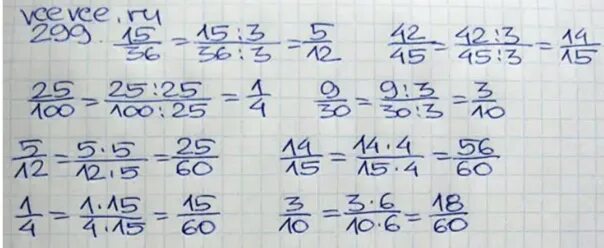 vcevce.ru
299. 15/36 = 15:3/36:3 = 5/12 42/45 = 42:3/45:3 = 14/15
25/100 = 25:25/100:25 = 1/4 9/30 = 9:3/30:3 = 3/10
5/12 = 5·5/12·5 = 25/60 14/15 = 14·4/15·4 = 56/60
1/4 = 1·15/4·15 = 15/60 3/10 = 3·6/10·6 = 18/60